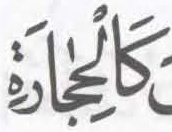 كَالْحِجَارَةِ